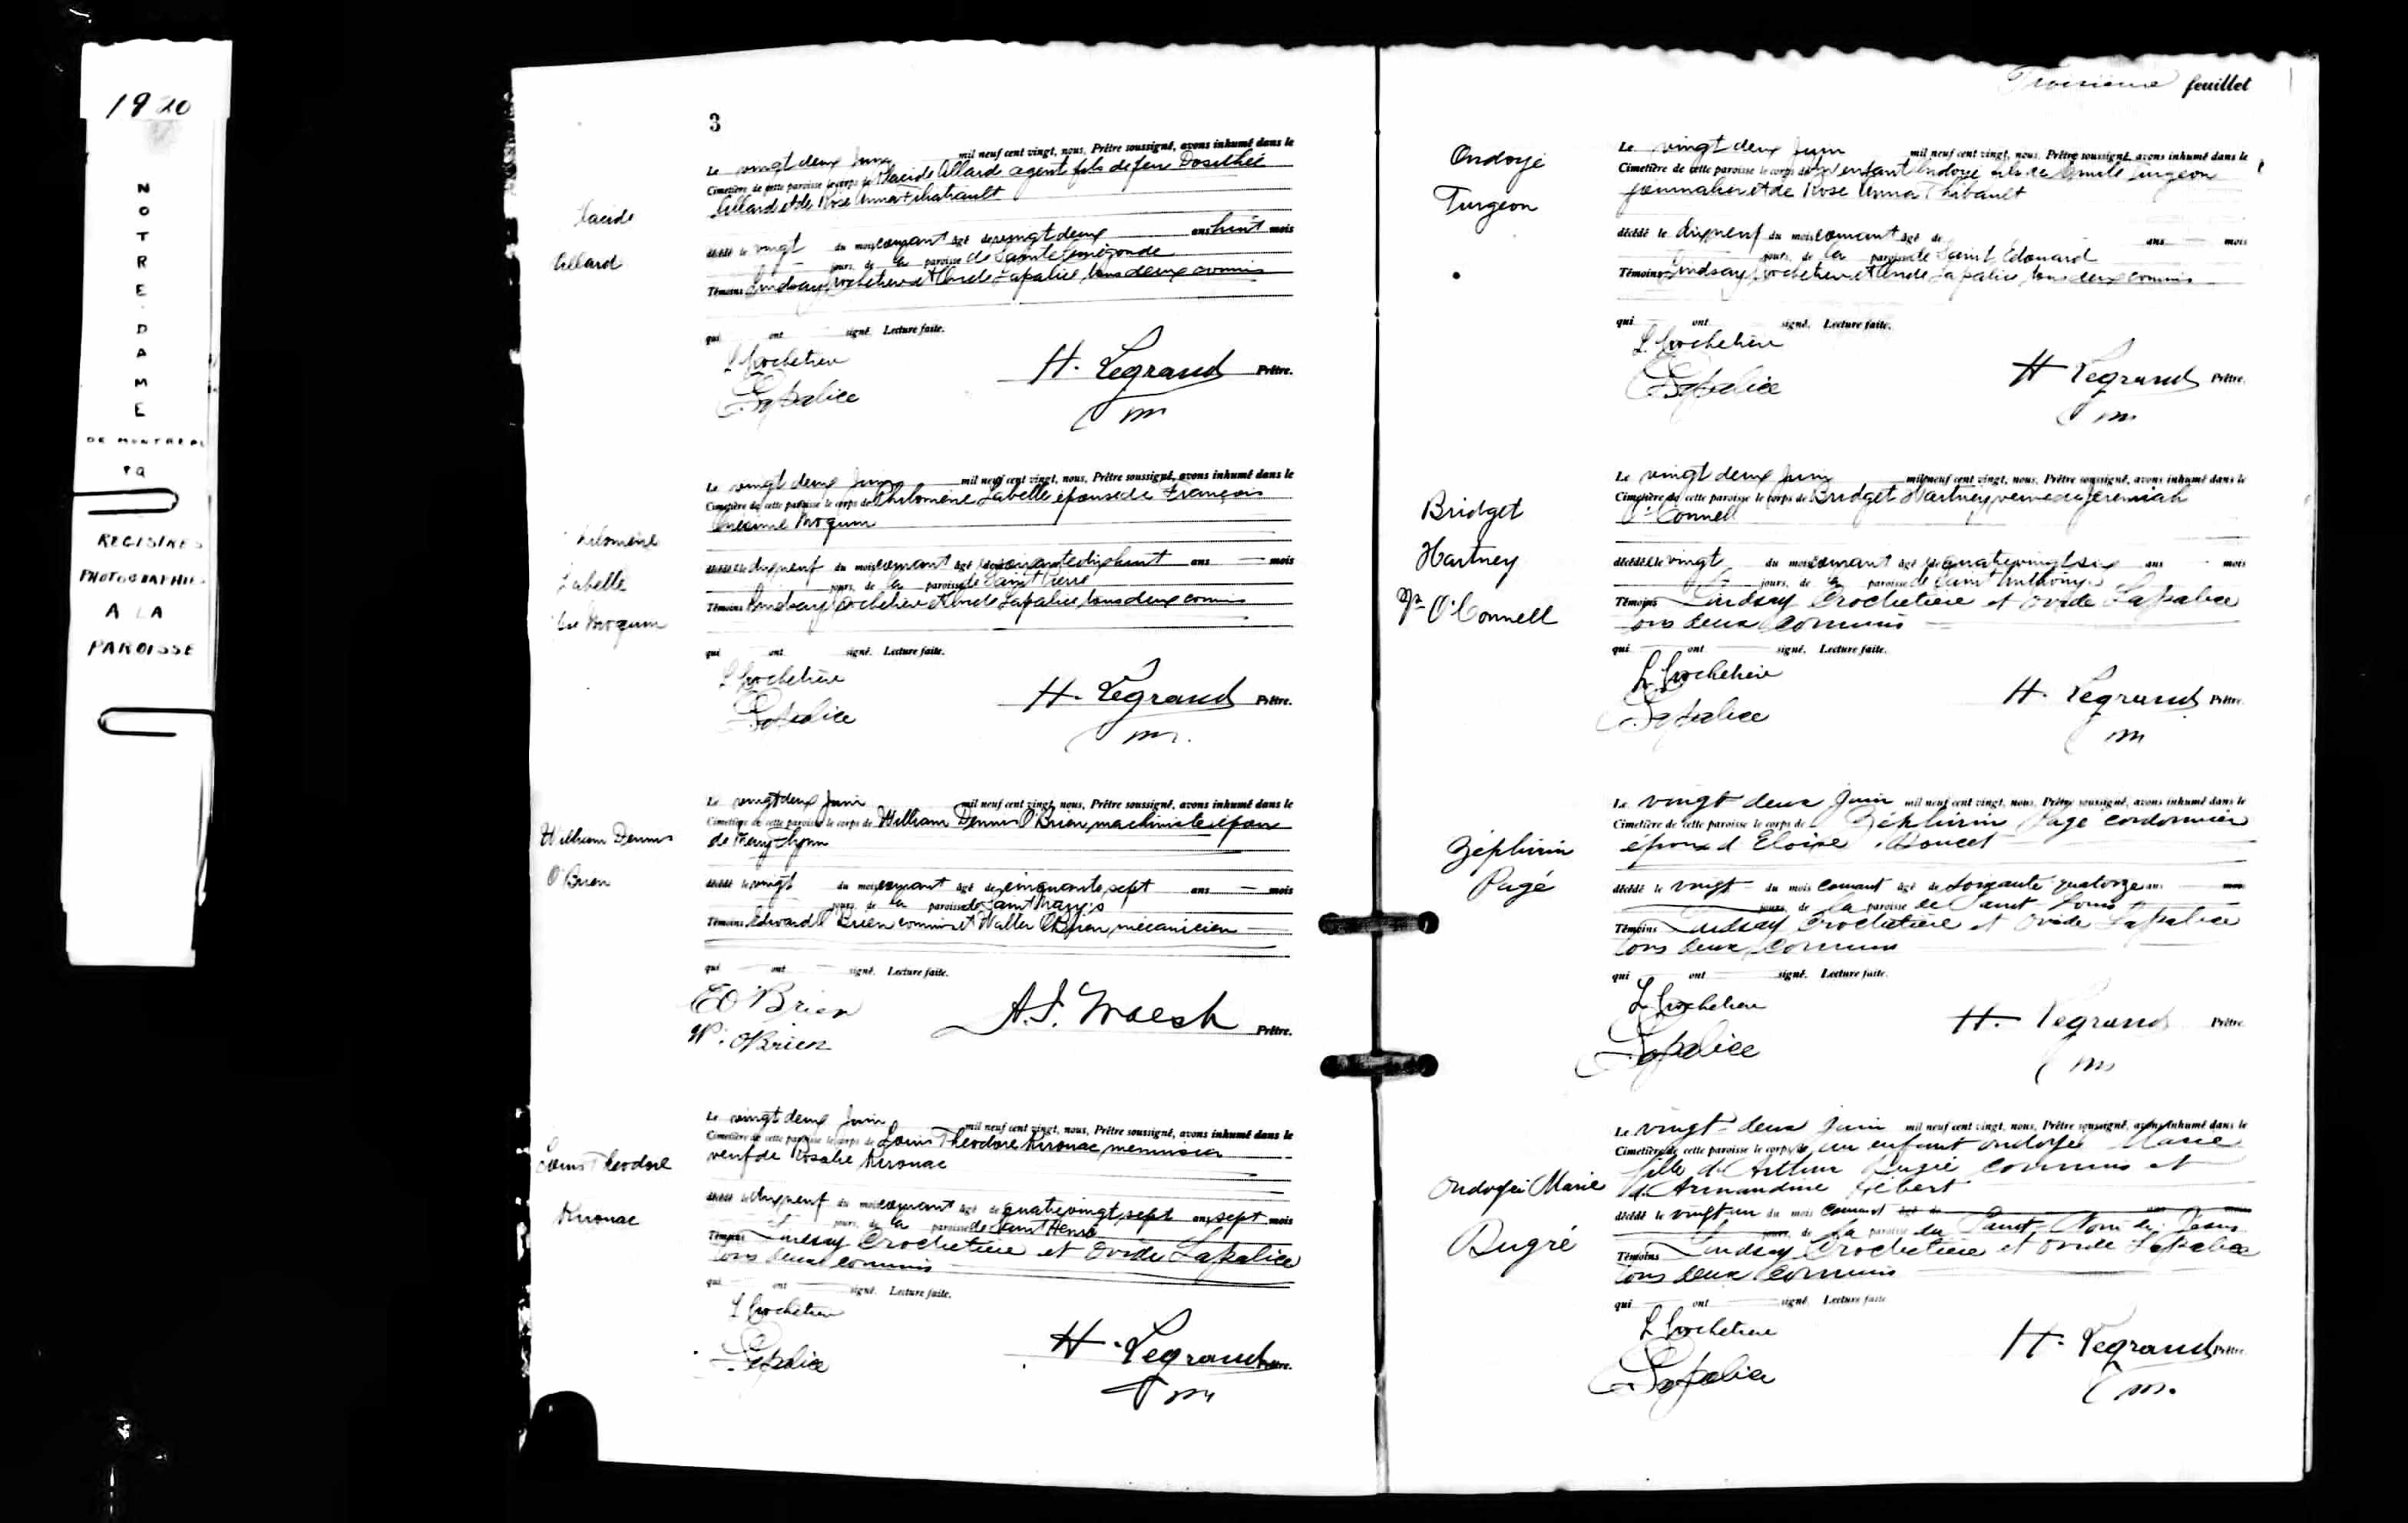 1920
NOTRE-DAME
DE MONTREAL
PQ
REGISTRES
PHOTOGRAPHIÉS
A LA
PAROISSE
3
Placide
Allard
Le vingt deux Juin mil neuf cent vingt, nous, Prêtre soussigné, avons inhumé dans le
Cimetière de cette paroisse le corps de Placide Allard agent fils de feu Dosithée
Allard et de Rose Anna Filiatrault
décédé le vingt du mois courant âgé de vingt deux ans huit mois
jours, de la paroisse de Sainte Cunégonde
Témoins Lindsay Crochetière et Ovide Lapalice tous deux commis
qui ont signé. Lecture faite.
L Crochetière
Lapalice
H. Legrand Prêtre.
Philomène
Labelle
Le vingt deux Juin mil neuf cent vingt, nous, Prêtre soussigné, avons inhumé dans le
Cimetière de cette paroisse le corps de Philomène Labelle épouse de François
décédée le dix neuf du mois courant âgé de soixante dix huit ans mois
jours, de la paroisse de Saint Pierre
Témoins Lindsay Crochetière et Ovide Lapalice tous deux commis
qui ont signé. Lecture faite.
L Crochetière
Lapalice
H. Legrand Prêtre.
William Dennis
O'Brien
Le vingt deux Juin mil neuf cent vingt, nous, Prêtre soussigné, avons inhumé dans le
Cimetière de cette paroisse le corps de William Dennis O'Brien machiniste époux
de Lynn
décédé le vingt du mois courant âgé de cinquante sept ans mois
jours, de la paroisse de Saint Mary's
Témoins Edward O'Brien commis et Walter O'Brien mécanicien
qui ont signé. Lecture faite.
E O'Brien
W. O'Brien
Prêtre.
Louis Théodore
Kirouac
Le vingt deux Juin mil neuf cent vingt, nous, Prêtre soussigné, avons inhumé dans le
Cimetière de cette paroisse le corps de Louis Théodore Kirouac menuisier
veuf de Rosalie Kirouac
décédé le dix neuf du mois courant âgé de quatre vingt sept ans sept mois
jours, de la paroisse de Saint Henri
Témoins Lindsay Crochetière et Ovide Lapalice
tous deux commis
qui ont signé. Lecture faite.
L Crochetière
Lapalice
H. Legrand Prêtre.
Troisième feuillet
Ondoyé
Turgeon
Le vingt deux Juin mil neuf cent vingt, nous, Prêtre soussigné, avons inhumé dans le
Cimetière de cette paroisse le corps d'un enfant ondoyé fils de Emile Turgeon
journalier et de Rose Anna Thibault
décédé le dix neuf du mois courant âgé de ans mois
jours, de la paroisse de Saint Edouard
Témoins Lindsay Crochetière et Ovide Lapalice tous deux commis
qui ont signé. Lecture faite.
L. Crochetière
Lapalice
H Legrand Prêtre.
Bridget
Hartney
O'Connell
Le vingt deux Juin mil neuf cent vingt, nous, Prêtre soussigné, avons inhumé dans le
Cimetière de cette paroisse le corps de Bridget Hartney veuve de Jeremiah
O'Connell
décédée le vingt du mois courant âgé de quatre vingt six ans mois
jours, de la paroisse de Saint Anthony's
Témoins Lindsay Crochetière et Ovide Lapalice
tous deux commis
qui ont signé. Lecture faite.
L Crochetière
Lapalice
H. Legrand Prêtre.
Zéphirin
Pagé
Le vingt deux Juin mil neuf cent vingt, nous, Prêtre soussigné, avons inhumé dans le
Cimetière de cette paroisse le corps de Zéphirin Pagé cordonnier
époux d'Eloise Doucet
décédé le vingt du mois courant âgé de soixante quatorze ans mois
jours, de la paroisse de Saint Louis
Témoins Lindsay Crochetière et Ovide Lapalice
tous deux commis
qui ont signé. Lecture faite.
L Crochetière
Lapalice
H. Legrand Prêtre
Ondoyée Marie
Bugré
Le vingt deux Juin mil neuf cent vingt, nous, Prêtre soussigné, avons inhumé dans le
Cimetière de cette paroisse le corps d'un enfant ondoyé Marie
fille d'Arthur Bugré commis et
d'Armandine Hébert
décédé le vingt un du mois courant âgé de ans mois
jours, de la paroisse du Saint Nom de Jésus
Témoins Lindsay Crochetière et Ovide Lapalice
tous deux commis
qui ont signé. Lecture faite
L Crochetière
Lapalice
H. Legrand Prêtre.